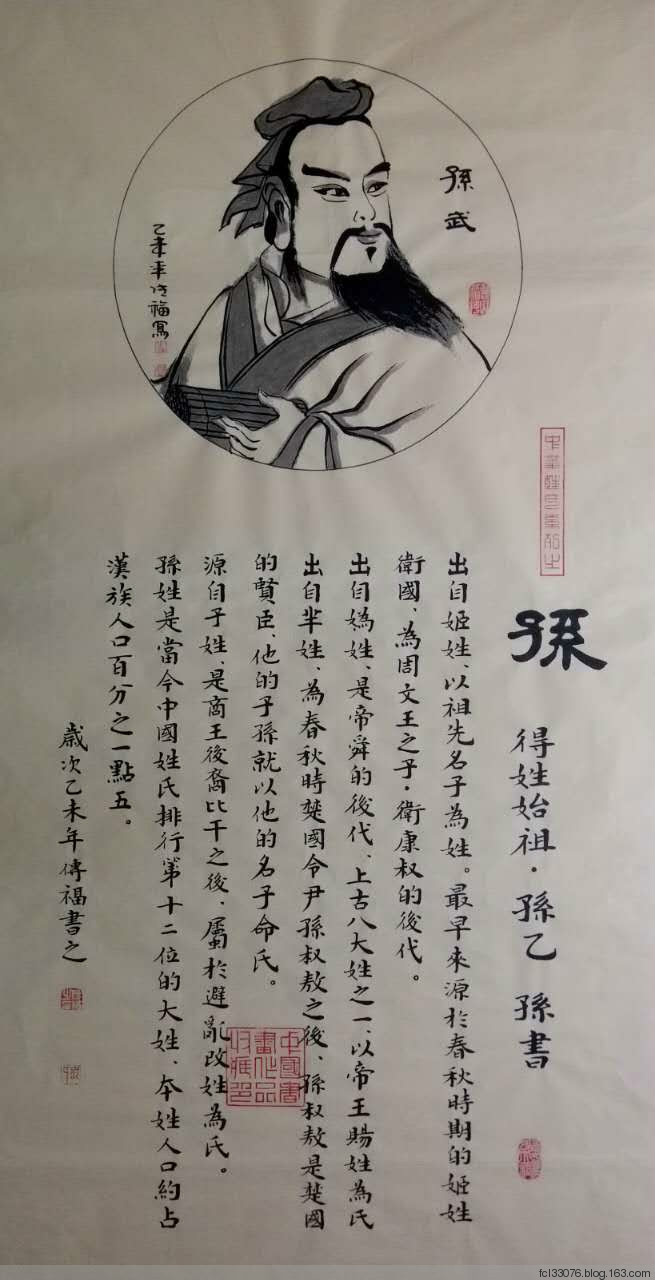 孫武
乙未年傳福寫
孫
得姓始祖·孫乙 孫書
出自姬姓、以祖先名子為姓。最早來源於春秋時期的姬姓
衛國、為周文王之子·衛康叔的後代。
出自媯姓、是帝舜的後代、上古八大姓之一、以帝王賜姓為氏
出自羋姓、為春秋時楚國令尹孫叔敖之後、孫叔敖是楚國
的賢臣、他的子孫就以他的名子命氏。
源自子姓、是商王後裔比干之後、屬於避亂改姓為氏。
孫姓是當今中國姓氏排行第十二位的大姓、本姓人口約占
漢族人口百分之一點五。
歲次乙未年傳福書之
中國書畫作品收藏印
fcl33076.blog.163.com